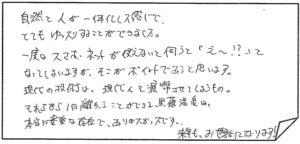 自然と人が一体化した感じで、
とてもゆったりすることができました。
一度はスマホ・ネットが使えないと伺うと「え〜!?」って
なってしまいますが、そこがポイントであると思います。
現代の技術は、現代人を疲弊させてくるもの。
それらから1日離れることができる、黒薙温泉は、
本当に貴重な存在で、ありがたかったです。
来年も、お世話になります!